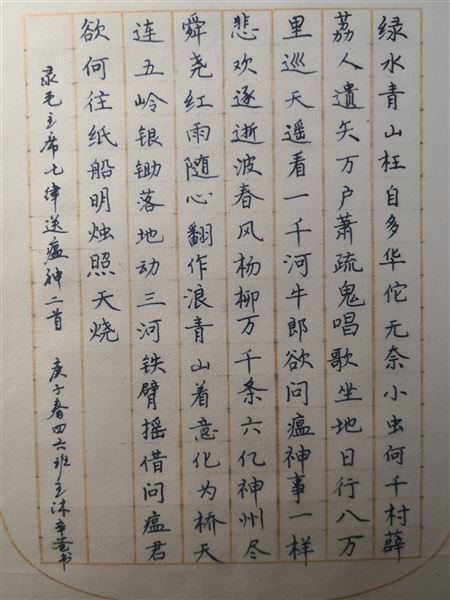 绿水青山枉自多华佗无奈小虫何千村薜
荔人遗矢万户萧疏鬼唱歌坐地日行八万
里巡天遥看一千河牛郎欲问瘟神事一样
悲欢逐逝波春风杨柳万千条六亿神州尽
舜尧红雨随心翻作浪青山着意化为桥天
连五岭银锄落地动三河铁臂摇借问瘟君
欲何往纸船明烛照天烧
录毛主席七律送瘟神二首 庚子春四六班王沐辛书